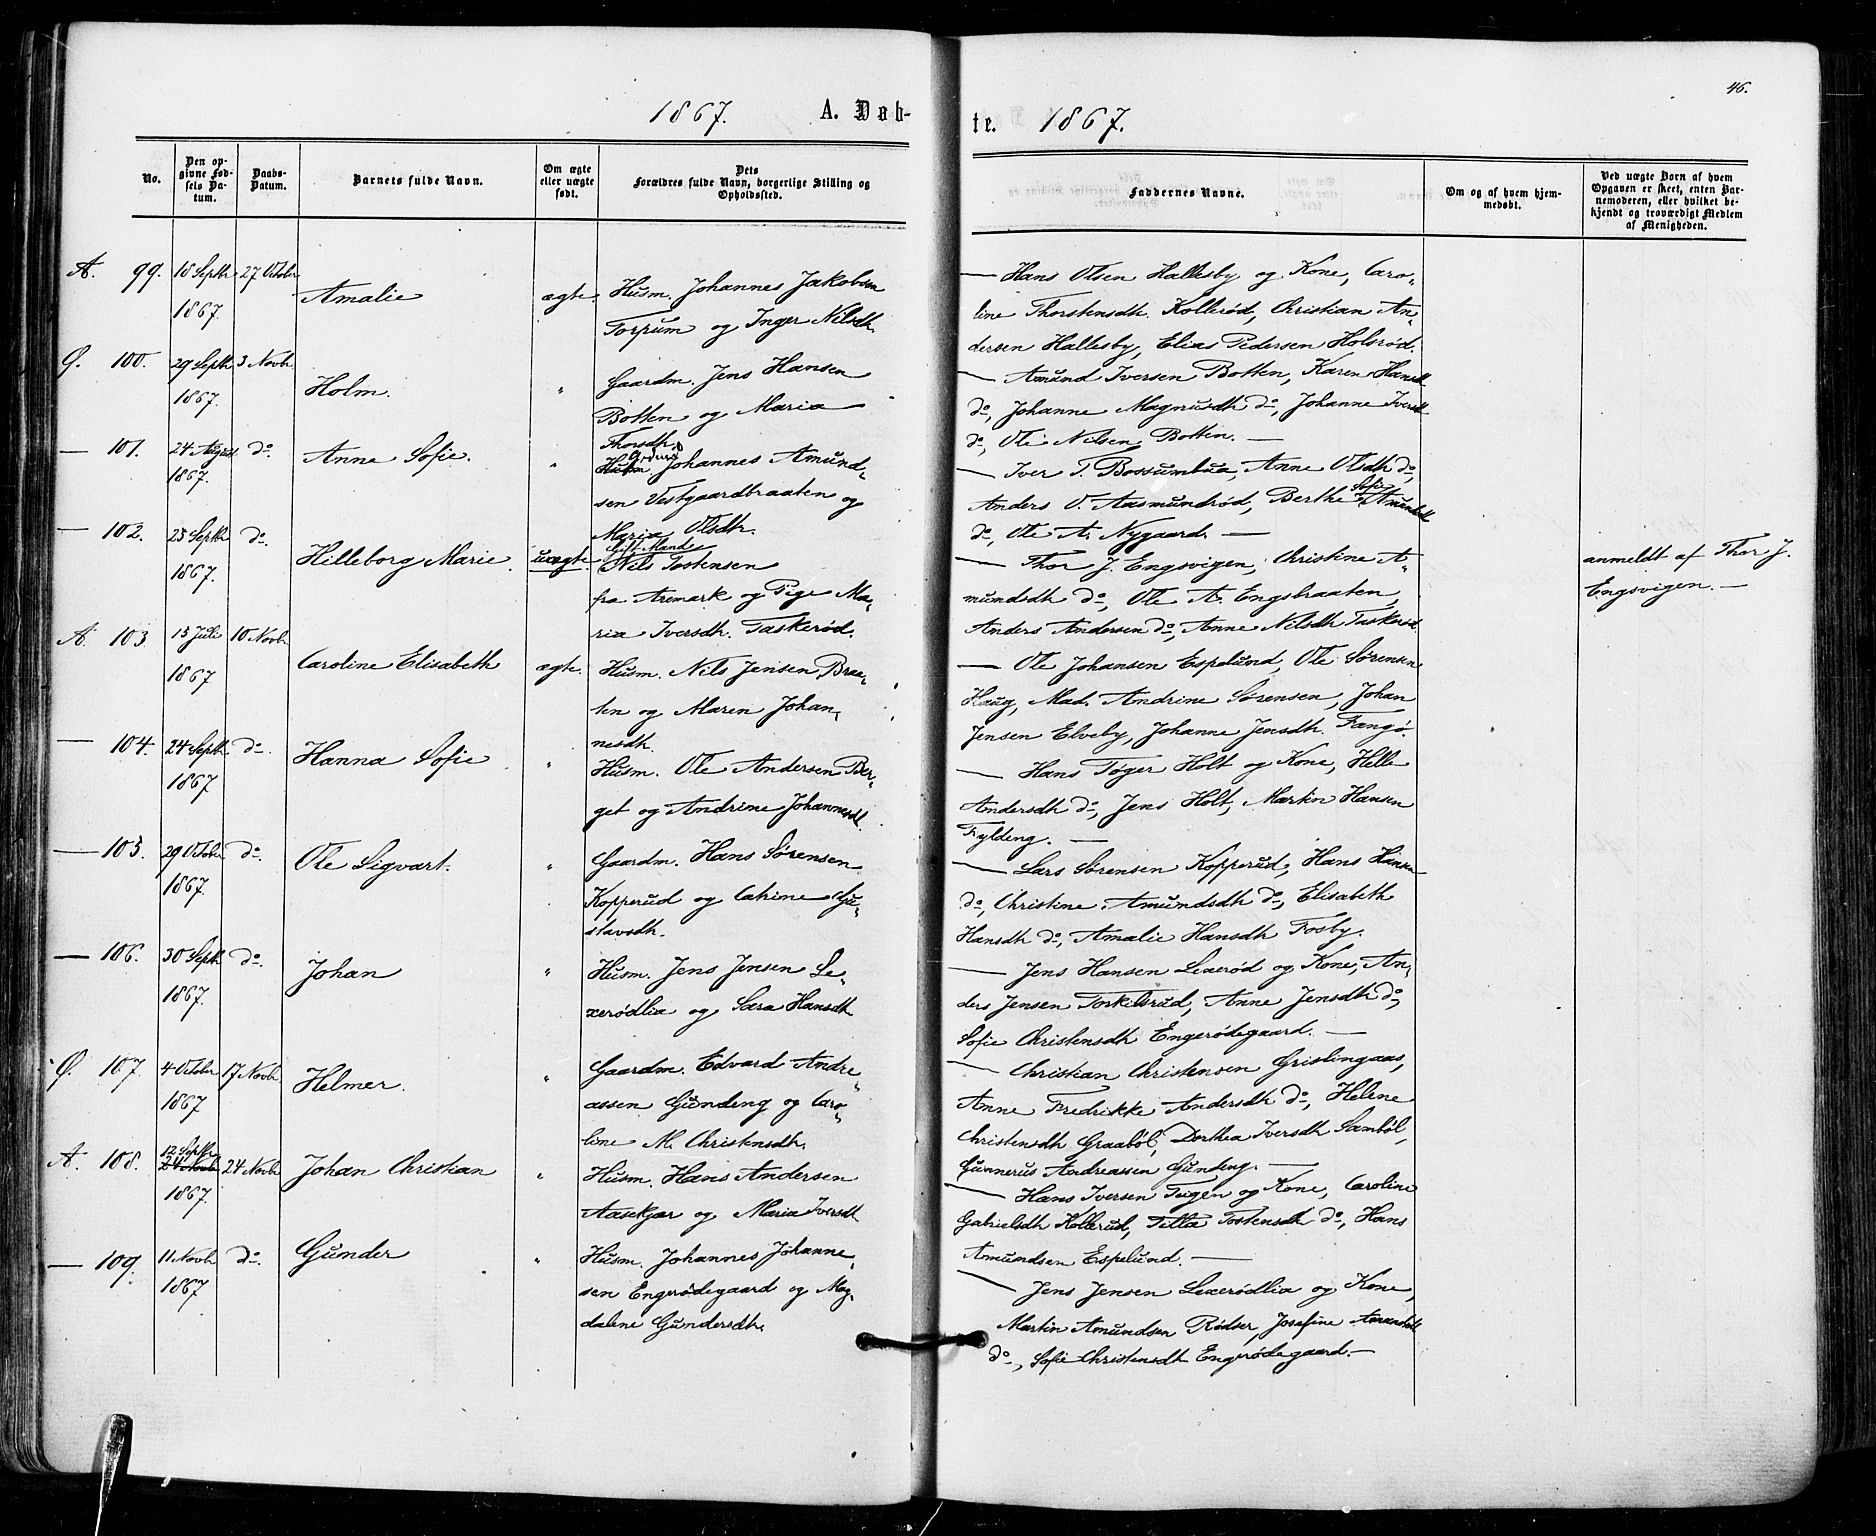 46.
1867. A. Døb-
te. 1867.
No.
Den op-
givne Fød-
sels Da-
tum.
Daabs-
Datum.
Barnets fulde Navn.
Om ægte
eller uægte
født.
Dets
Forældres fulde Navn, borgerlige Stilling og
Opholdssted.
Faddernes Navne.
Om og af hvem hjem-
medøbt.
Ved uægte Børn af hvem
Opgaven er skeet, enten Bar-
nemoderen, eller hvilket be-
kjendt og troværdigt Medlem
af Menigheden.
A. 99. 18 Septbr 27 Octobr
1867.
Amalie
ægte.
Husm. Johannes Jakobsen
Torpum og Inger Nilsdh.
— Hans Olsen Hallesby og Kone, Caro-
line Thorstensdh. Kollerød, Christian An-
dersen Hallesby, Elias Pedersen Holsrød.
Ø. 100. 29 Septbr 3 Novbr
1867.
Holm.
"
Gaardm. Jens Hansen
Botten og Maria
Thorsdh.
— Amund Iversen Botten, Karen Hansdh
do, Johanne Magnusdh do, Johanne Iversdh
do, Ole Nilsen Botten. —
— 101. 24 August do.
1867.
Anne Sofie.
"
Husm. Johannes Amund-
sen Vestgaardbraaten og
Maria Olsdh.
— Iver T. Bossumbua, Anne Olsdh do,
Anders O. Aasmundrød, Berthe Sofie Amundsdh
do, Ole A. Nygaard. —
— 102. 25 Septbr do.
1867.
Hilleborg Marie.
uægte.
Gift Mand
Nils Tostensen
fra Aremark og Pige Ma-
ria Iversdh. Taskerød.
— Thor J. Engsvigen, Christine A-
mundsdh do, Ole A. Engsbraaten,
Anders Andersen do, Anne Nilsdh Taskerød
anmeldt af Thor J.
Engsvigen. —
A. 103 15 Juli 10 Novbr
1867
Caroline Elisabeth
ægte.
Husm. Nils Jensen Braa-
ten og Maren Johan-
nesdh.
— Ole Johansen Espelund, Ole Sørensen
Haug, Mad. Andrine Sørensen, Johan
Jensen Elveby, Johanne Jensdh. Fangø.
— 104. 24 Septbr do.
1867
Hanna Sofie
"
Husm. Ole Andersen Ber-
get og Andrine Johannesdh.
— Hans Tøger Holt og Kone, Helle
Andersdh do, Jens Holt, Martin Hansen
Fyldeng. —
— 105. 29 October do.
1867.
Ole Sigvart.
"
Gaardm. Hans Sørensen
Kopperud og Cathrine Gu-
stavsdh.
— Lars Sørensen Kopperud, Hans Hansen
do, Christine Amundsdh do, Elisabeth
Hansdh do, Amalie Hansdh Fosby.
— 106. 30 Septbr do.
1867.
Johan
"
Husm. Jens Jensen Le-
xerødlia og Sara Hansdh
— Jens Hansen Lexerød og Kone, An-
ders Jensen Torkelsrud, Anne Jensdh do,
Sofie Christensdh Engerødegaard. —
Ø. 107. 4 October 17 Novbr
1867
Helmer.
"
Gaardm. Edvard Andre-
assen Gundeng og Caro-
line M. Christensdh.
— Christian Christensen Grislingaas,
Anne Fredrikke Andersdh do, Helene
Christensdh Graabøl, Dorthea Iversdh Sambøl,
Gunnerus Andreassen Gundeng. —
A. 108. 12 Septbr
24 Novbr 24 Novbr
1867.
Johan Christian
"
Husm. Hans Andersen
Aasekjær og Maria Iversdh
— Hans Iversen Tugen og Kone, Caroline
Gabrielsdh Kollerud, Tilla Tostensdh do, Hans
Amundsen Espelund. —
— 109. 11 Novbr do.
1867
Gunder
"
Husm. Johannes Johanne-
sen Engerødegaard og Mag-
dalene Gundersdh.
— Jens Jensen Lexerødlia og Kone,
Martin Amundsen Rødser, Josefine Amundsdh
do, Sofie Christensdh Engerødegaard. —